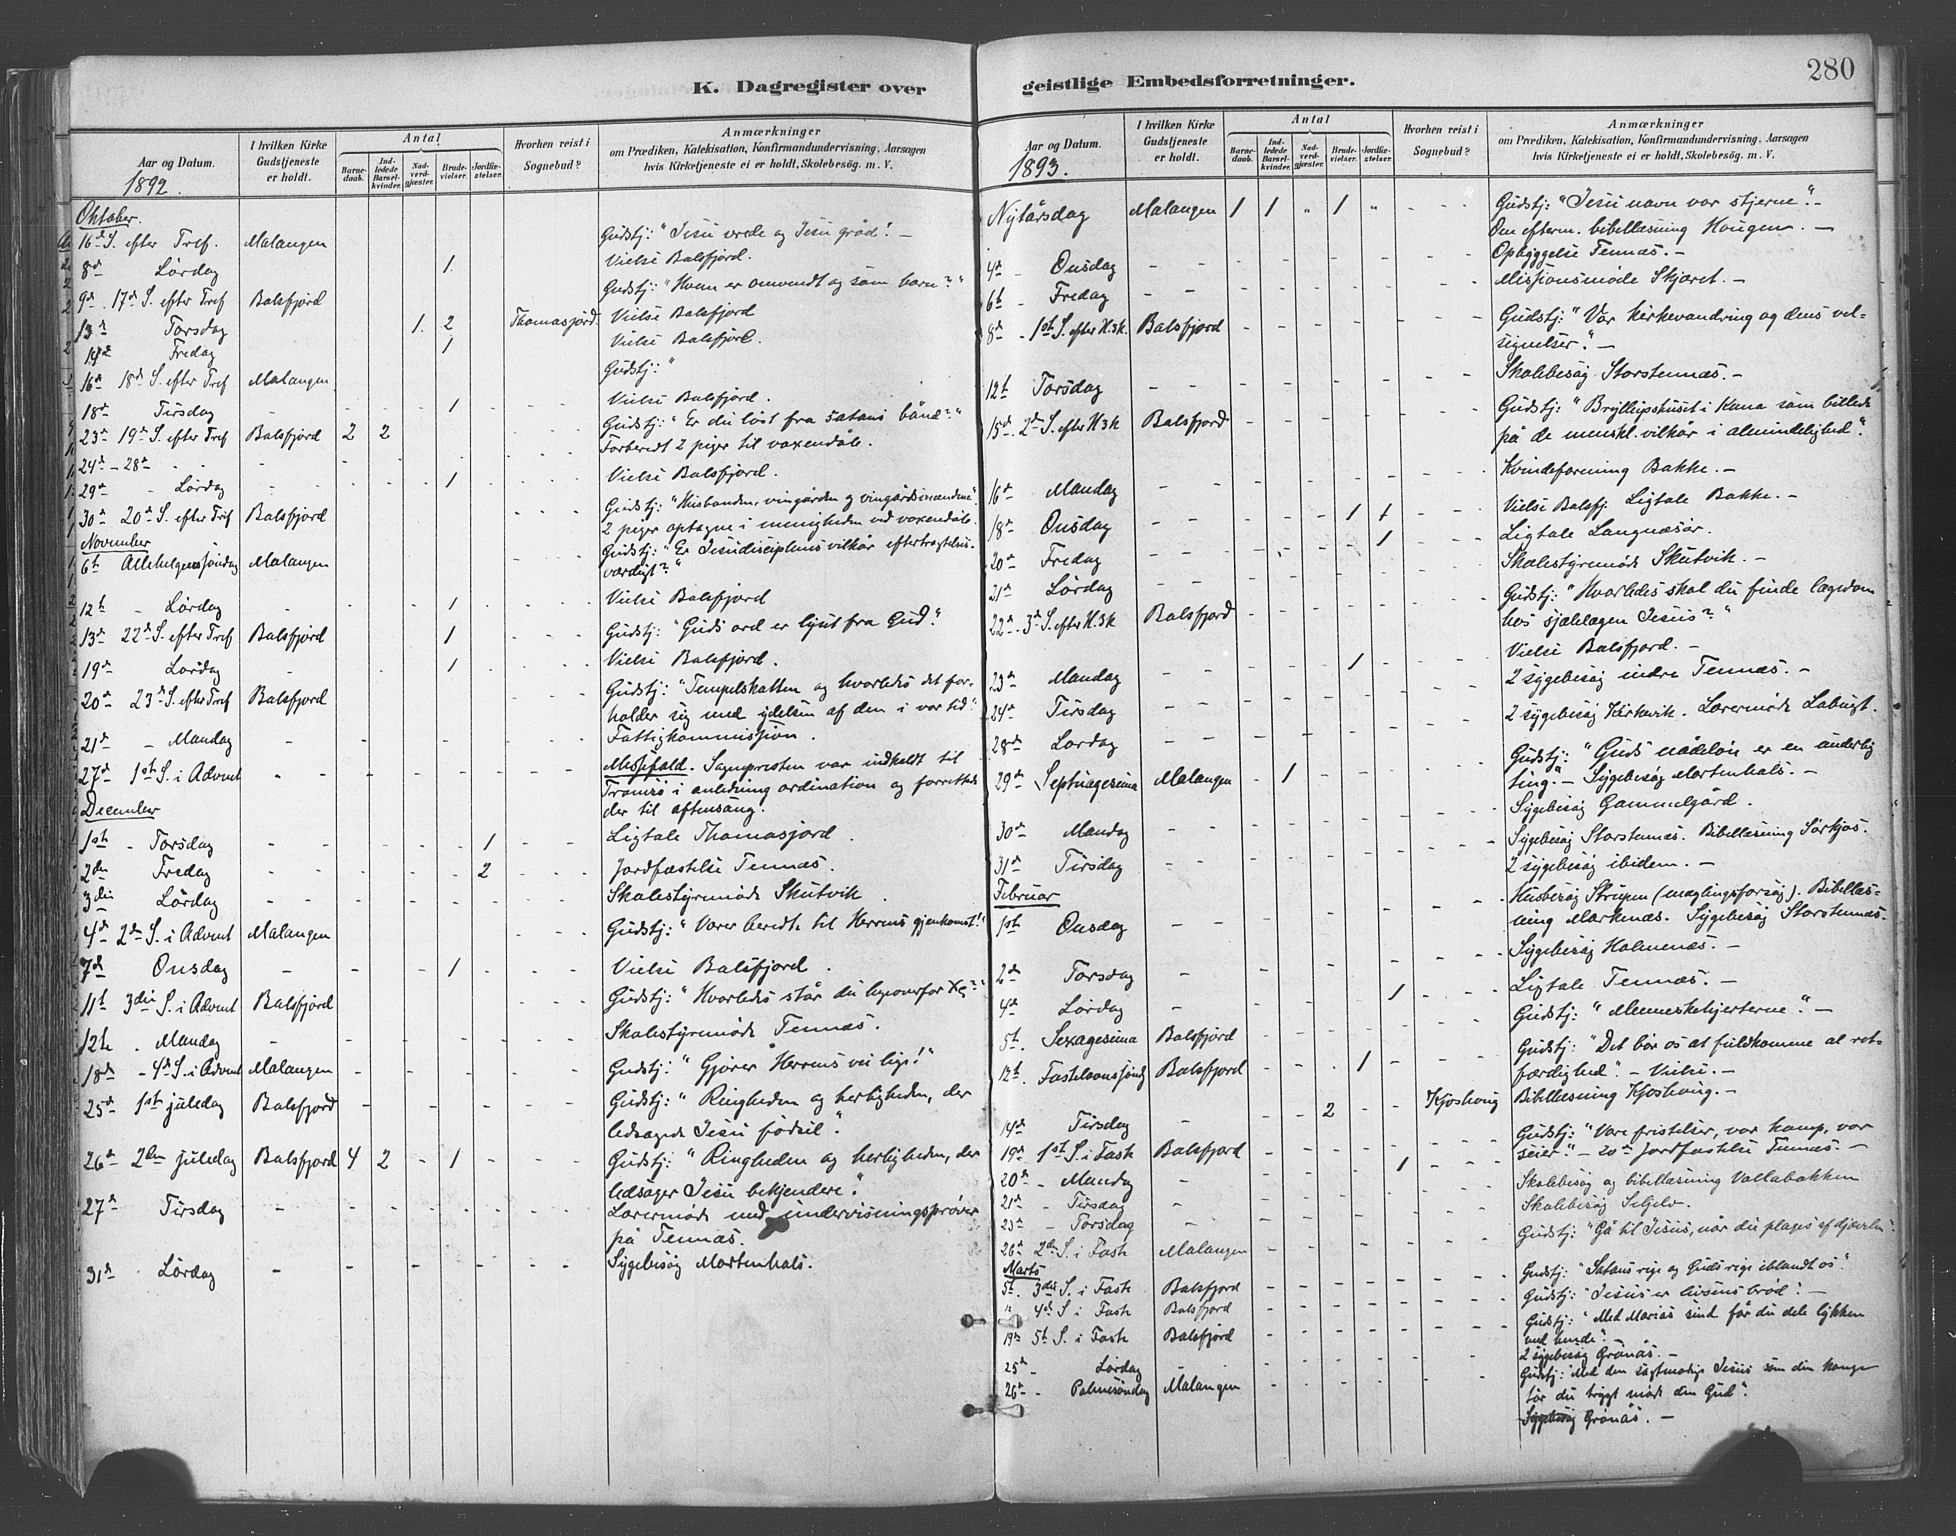 K. Dagregister over
geistlige Embedsforretninger.
280
Aar og Datum.
1892.
I hvilken Kirke Gudstjeneste er holdt.
Antal
Barnedaab.
Indledede Barselkvinder.
Nadverdgjæster.
Brudevielser.
Jordfæstelser.
Hvorhen reist i Sognebud?
Anmærkninger
om Prædiken, Katekisation, Konfirmandundervisning, Aarsagen
hvis Kirketjeneste ei er holdt, Skolebesög. m. V.
Oktober.
16de S. efter Tref. Malangen Gudstj: "Jesu vrede og Jesu gråd". —
8d Lördag 1. Vielse Balsfjord.
9d 17d S. efter Tref Balsfjord Gudstj: "Hvem er omvendt og som barn?"
13d Torsdag 1. 2 Thomasjord Vielse Balsfjord
14d Fredag 1 Vielse Balsfjord.
16d 18d S. efter Tref Malangen Gudstj: "
18d Tirsdag 1 Vielse Balsfjord.
23d 19d S. efter Tref Balsfjord 2 2 Gudstj: "Er du löst fra satans bånd?"
24d – 28d Forberedt 2 piger til voxendåb.
29d Lördag 1 Vielse Balsfjord.
30d 20d S. efter Tref Balsfjord Gudstj: "Husbonden, vingården og vingårdsmændene"
2 piger optagne i menigheden ved voxendåb.
November
6t Allehelgenssöndag Malangen Gudstj: "Er Jesudisciplens vilkår eftertragtelses-
værdigt?"
12t Lördag 1 Vielse Balsfjord
13d 22d S. efter Tref Balsfjord 1 Gudstj: "Guds ord er lyset fra Gud".
19d Lördag 1 Vielse Balsfjord.
20d 23d S. efter Tref Balsfjord Gudstj: "Tempelskatten og hvorledes det for-
holder sig med ydelsen af den i vor tid".
21d Mandag Fattigkommission.
27d 1st S. i Advent Messefald. Sognepresten var indkaldt til
Tromsö i anledning ordination og forrettede
der til aftensang.
December
1st Torsdag 1 Ligtale Thomasjord.
2den Fredag 2 Jordfæstelse Tennæs.
3die Lördag Skolestyremöde Skutvik.
4d 2d S. i Advent Malangen Gudstj: "Vorer beredte til Herrens gjenkomst!"
7d Onsdag 1 Vielse Balsfjord.
11t 3die S. i Advent Balsfjord Gudstj: "Hvorledes står du ligeoverfor Xs?"
12te Mandag Skolestyremöde Tennæs.
18d 4d S. i Advent Malangen Gudstj: "Gjörer Herrens vei lige!"
25d 1st juledag Balsfjord Gudstj: "Ringheden og herligheden, der
ledsagede Jesu födsel".
26d 2den juledag Balsfjord 4 2 1 Gudstj: "Ringheden og herligheden, der
ledsager Jesu bekjendere".
27d Tirsdag Lærermöde med undervisningspröver
på Tennæs.
31d Lördag Sygebesög Mortenhals.
Aar og Datum.
1893.
I hvilken Kirke Gudstjeneste er holdt.
Antal
Barnedaab.
Indledede Barselkvinder.
Nadverdgjæster.
Brudevielser.
Jordfæstelser.
Hvorhen reist i Sognebud?
Anmærkninger
om Prædiken, Katekisation, Konfirmandundervisning, Aarsagen
hvis Kirketjeneste ei er holdt, Skolebesög. m. V.
Nytårsdag Malangen 1 1 " 1 " Gudstj: "Jesu navn vor stjerne". —
Den efterm. bibellæsning Haugen. —
4d Onsdag Opbyggelse Tennæs. —
6t Fredag Missionsmöde Skjæret. —
8d 1st S. efter H.3.K. Balsfjord Gudstj: "Vor kirkevandring og dens vel-
signelser". —
12t Torsdag Skolebesög Storstennæs. —
15d 2d S. efter H3K Balsfjord Gudstj: "Bryllupshuset i Kana som billede
på de menskl. vilkår i almindelighed".
16d Mandag Kvindeforening Bakke. —
18d Onsdag 1 1 Vielse Balsfj. Ligtale Bakke. —
20d Fredag 1 Ligtale Langnæsör.
21d Lördag Skolestyremöde Skutvik. —
22d 3d S. efter H.3K Balsfjord Gudstj: "Hvorledes skal du finde lægedom
hos sjælelægen Jesus?"
23d Mandag 1 Vielse Balsfjord. —
24d Tirsdag 2 sygebesög indre Tennæs. —
28d Lördag 2 sygebesög Kirkevik. Lærermöde Labugt.
29d Septuagesima Malangen 1 Gudstj: "Guds nådelön er en underlig
ting". — Sygebesög Mortenhals. —
30d Mandag Sygebesög Gammelgård.
31d Tirsdag Sygebesög Storstennæs. Bibellæsning Sörkjos.
2 sygebesög ibidem. —
Februar
1st Onsdag Husbesög Strupen (mæglingsforsög). Bibellæs-
ning Markenæs. Sygebesög Storstennæs.
2d Torsdag Sygebesög Holmenæs. —
4d Lördag 1 Ligtale Tennæs. —
5t Sexagesima Balsfjord Gudstj: "Menneskehjerterne". —
12t Fastelavnssönd Balsfjord 1 Gudstj: "Det bör os at fuldkomme al ret-
færdighed". — Vielse. —
14d Tirsdag 2 Kjoshoug Bibellæsning Kjoshoug. —
19d 1st S. i Fask Balsfjord Gudstj: "Vore fristelser, vor kamp, vor
seier". — 20d Jordfæstelse Tennæs. —
20d Mandag 1
21d Tirsdag Skolebesög og bibellæsning Vollabakken
23d Torsdag Skolebesög Seljelv.
26d 2den S. i Fask Malangen Gudstj: "Gå til Jesus, når du plages af djævelen".
Marts
5t 3die S. i Fask Balsfjord Gudstj: "Satans rige og Guds rige iblandt os".
" 4d S i Fask Balsfjord Gudstj: "Jesus er livsens bröd". —
19d 5t S. i Fask Balsfjord Gudstj: "Med Marias sind får du dele lykken
med hende".
25d Lördag 2 sygebesög Grönås. —
26d Palmesöndag Malangen Gudstj: "Med den sagtmodige Jesus som din konge
tör du trygt möde din Gud".
Sygebesög Grönås. —